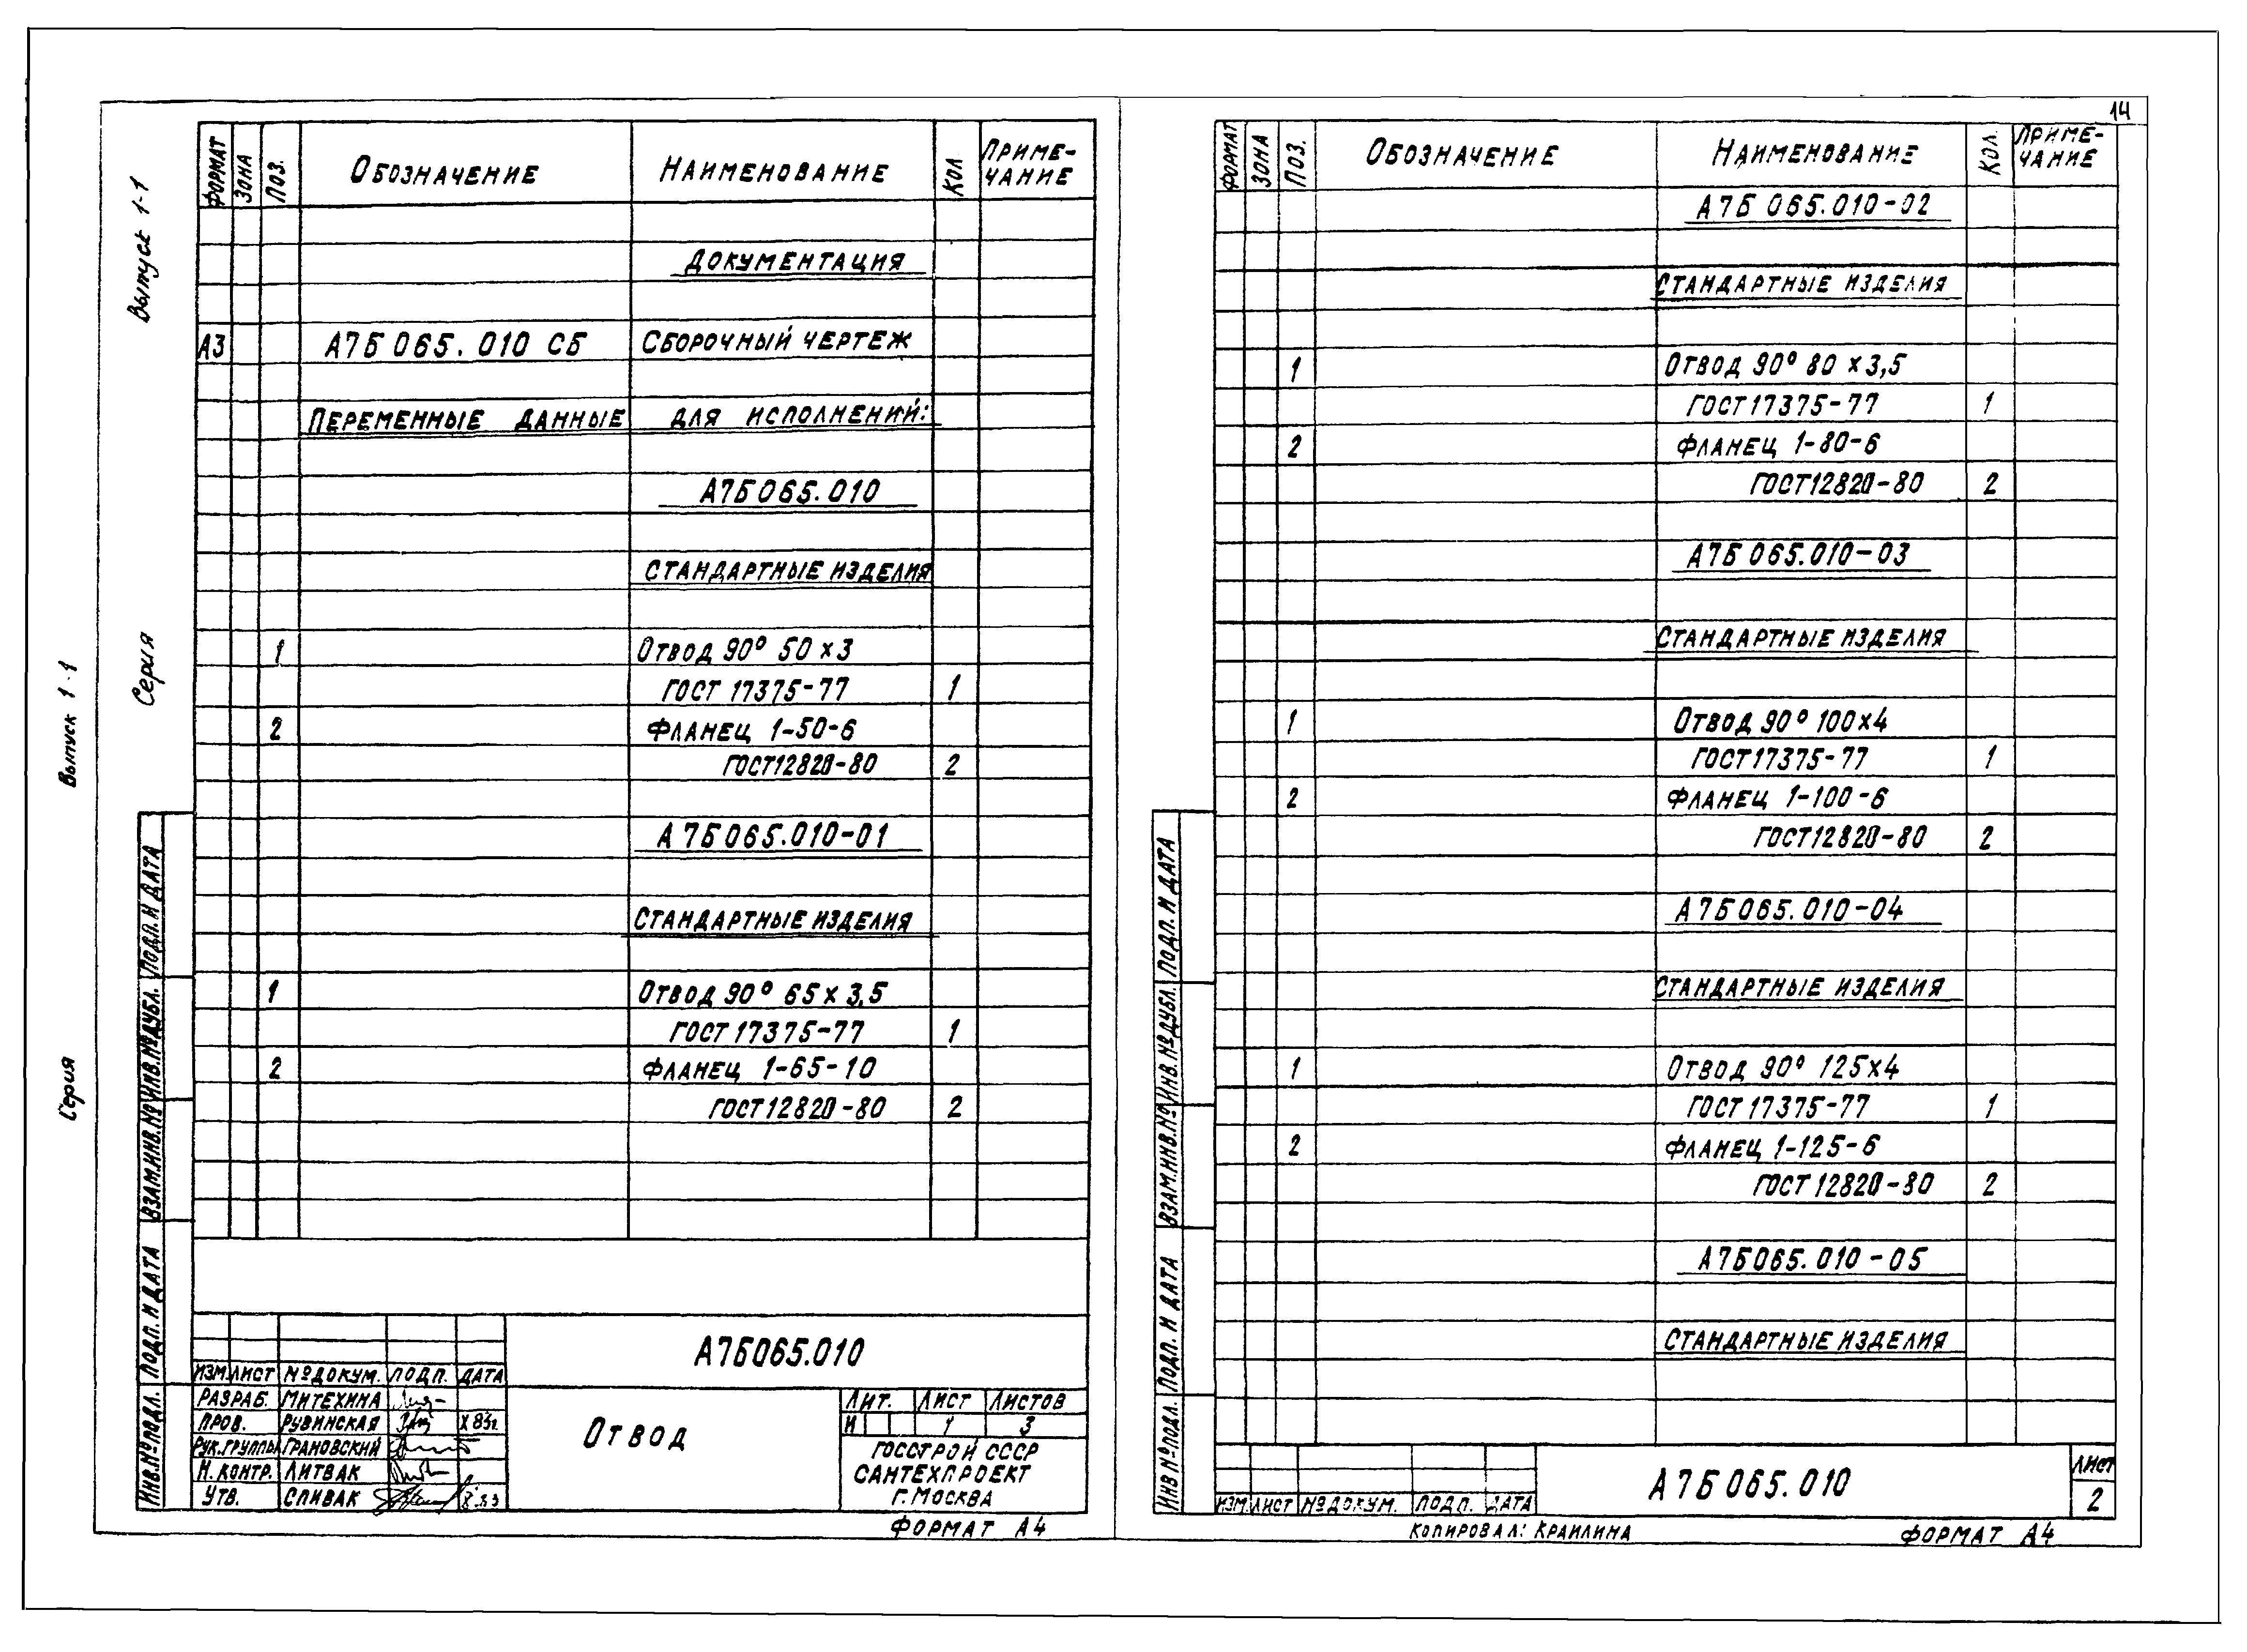 14
Выпуск 1-1
Серия
Выпуск 1-1
Серия
ФОРМАТ ЗОНА ПОЗ. ОБОЗНАЧЕНИЕ НАИМЕНОВАНИЕ КОЛ ПРИМЕ-
ЧАНИЕ
ДОКУМЕНТАЦИЯ
А3 А7Б065.010 СБ СБОРОЧНЫЙ ЧЕРТЕЖ
ПЕРЕМЕННЫЕ ДАННЫЕ ДЛЯ ИСПОЛНЕНИЙ:
А7Б065.010
СТАНДАРТНЫЕ ИЗДЕЛИЯ
1 ОТВОД 90° 50×3
ГОСТ 17375-77 1
2 ФЛАНЕЦ 1-50-6
ГОСТ12820-80 2
А7Б065.010-01
СТАНДАРТНЫЕ ИЗДЕЛИЯ
1 ОТВОД 90° 65×3,5
ГОСТ 17375-77 1
2 ФЛАНЕЦ 1-65-10
ГОСТ12820-80 2
ИНВ.№ПОДЛ. ПОДП. И ДАТА ВЗАМ.ИНВ.№ ИНВ.№ДУБЛ. ПОДП. И ДАТА
А7Б065.010
ИЗМ. ЛИСТ №ДОКУМ. ПОДП. ДАТА
РАЗРАБ. МИТЕХИНА
ПРОВ. РУВИНСКАЯ X 83г.
РУК.ГРУППЫ ГРАНОВСКИЙ
Н. КОНТР. ЛИТВАК
УТВ. СПИВАК
ОТВОД
ЛИТ. ЛИСТ ЛИСТОВ
И 1 3
ГОССТРОЙ СССР
САНТЕХПРОЕКТ
Г. МОСКВА
ФОРМАТ А4
ФОРМАТ ЗОНА ПОЗ. ОБОЗНАЧЕНИЕ НАИМЕНОВАНИЕ КОЛ. ПРИМЕ-
ЧАНИЕ
А7Б 065.010-02
СТАНДАРТНЫЕ ИЗДЕЛИЯ
1 ОТВОД 90° 80×3,5
ГОСТ17375-77 1
2 ФЛАНЕЦ 1-80-6
ГОСТ12820-80 2
А7Б 065.010-03
СТАНДАРТНЫЕ ИЗДЕЛИЯ
1 ОТВОД 90° 100×4
ГОСТ17375-77 1
2 ФЛАНЕЦ 1-100-6
ГОСТ12820-80 2
А7Б065.010-04
СТАНДАРТНЫЕ ИЗДЕЛИЯ
1 ОТВОД 90° 125×4
ГОСТ 17375-77 1
2 ФЛАНЕЦ 1-125-6
ГОСТ 12820-80 2
А7Б065.010-05
СТАНДАРТНЫЕ ИЗДЕЛИЯ
ИНВ №ПОДЛ. ПОДП. И ДАТА ВЗАМ.ИНВ.№ ИНВ.№ДУБЛ. ПОДП. И ДАТА
ИЗМ. ЛИСТ №ДОКУМ. ПОДП. ДАТА
А7Б065.010
ЛИСТ
2
КОПИРОВАЛ: КРАИЛИНА
ФОРМАТ А4